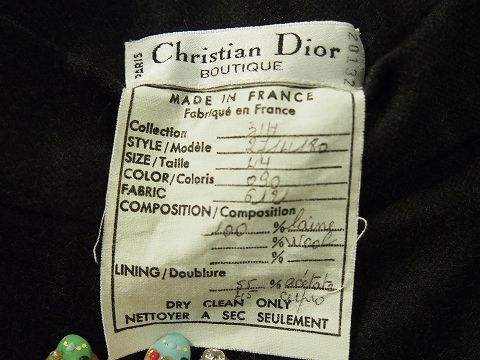 Christian Dior
PARIS
BOUTIQUE
20132
MADE IN FRANCE
Fabriqué en France
Collection 31H
STYLE/Modèle 2714180
SIZE/Taille 44
COLOR/Coloris 090
FABRIC 612
COMPOSITION/Composition
100 % laine
% wool
%
LINING/Doublure 55 % acétate
45
DRY CLEAN ONLY
NETTOYER A SEC SEULEMENT